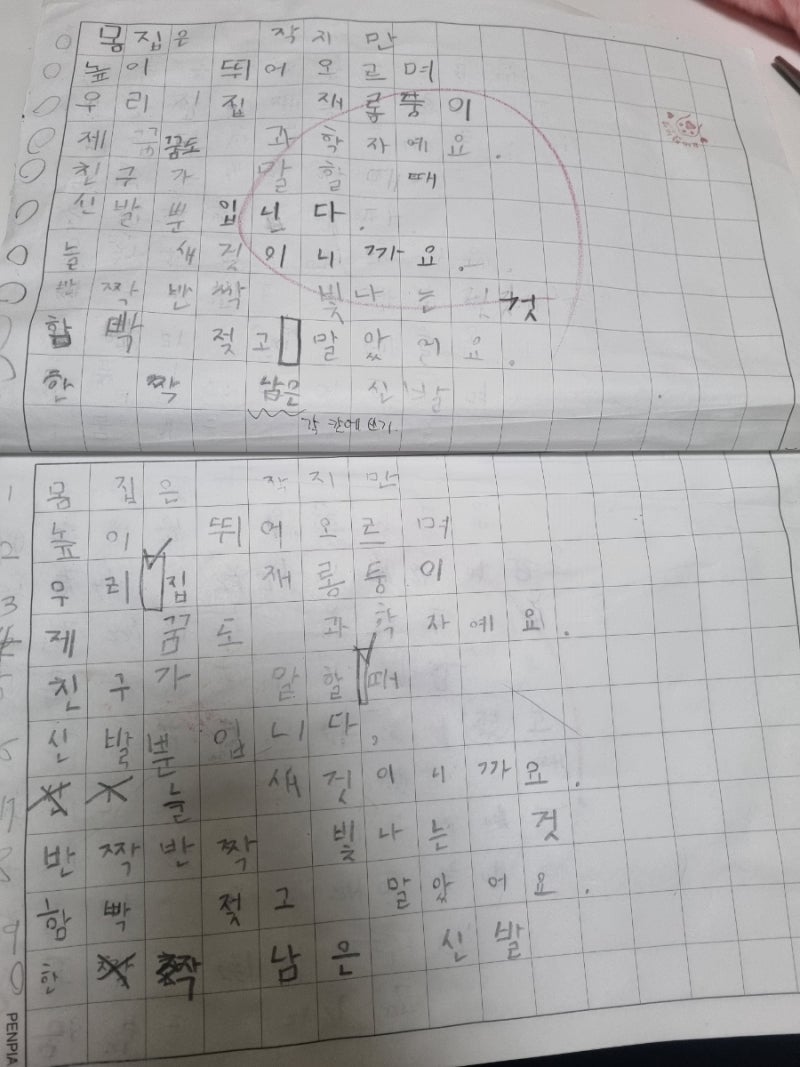 몸집은 작지만
높이 뛰어오르며
우리 집 재롱둥이
제 꿈도 과학자예요.
친구가 말할 때
신발뿐입니다.
늘 새것이니까요.
반짝반짝 빛나는 것
함빡 젖고 말았어요.
한 짝 남은 신발
각 칸에 쓰기
1 몸집은 작지만
2 높이 뛰어오르며
3 우리 집 재롱둥이
4 제 꿈도 과학자예요.
5 친구가 말할 때
6 신발뿐입니다.
7 늘 새것이니까요.
8 반짝반짝 빛나는 것
9 함빡 젖고 말았어요.
10 한 짝 남은 신발
PENPIA